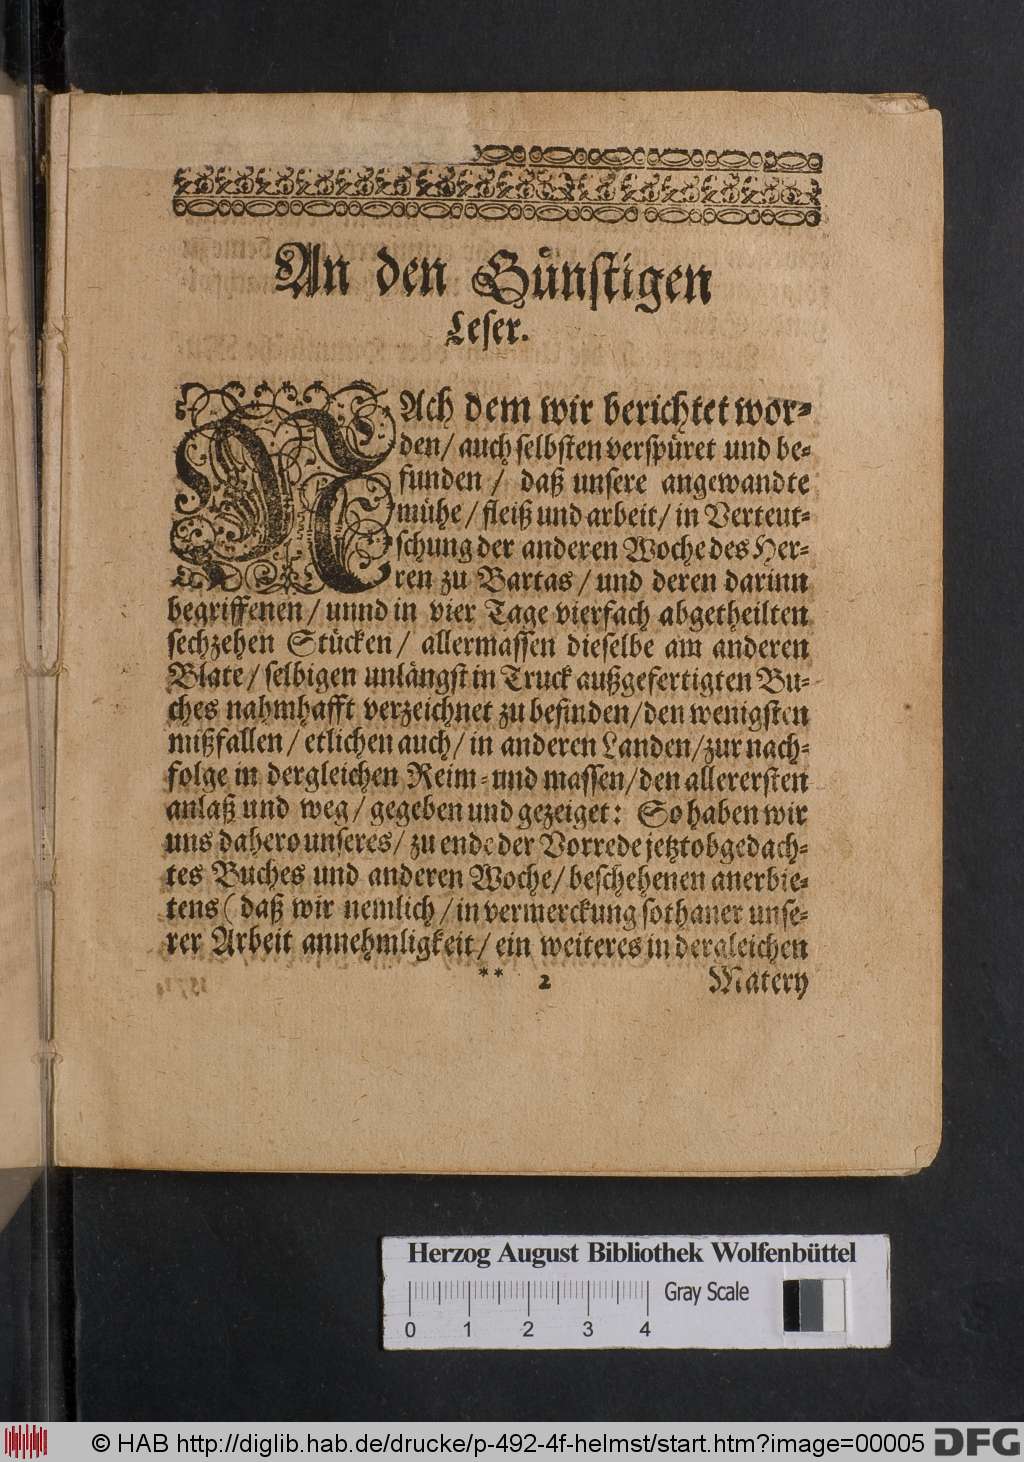 An den Günstigen
Leser.
NAch dem wir berichtet wor-
den/ auch selbsten verspüret und be-
funden / daß unsere angewandte
mühe / fleiß und arbeit/ in Verteut-
schung der anderen Woche des Her-
ren zu Bartas / und deren darinn
begriffenen / unnd in vier Tage vierfach abgetheilten
sechzehen Stücken/ allermassen dieselbe am anderen
Blate/ selbigen unlängst in Truck außgefertigten Bu-
ches nahmhafft verzeichnet zu befinden/ den wenigsten
mißfallen/ etlichen auch/ in anderen Landen/ zur nach-
folge in dergleichen Reim- und massen/ den allerersten
anlaß und weg/ gegeben und gezeiget: So haben wir
uns dahero unseres/ zu ende der Vorrede jetztobgedach-
tes Buches und anderen Woche/ beschehenen anerbie-
tens ( daß wir nemlich / in vermerckung sothaner unse-
rer Arbeit annehmligkeit/ ein weiteres in dergleichen
** 2 Matery
Herzog August Bibliothek Wolfenbüttel
Gray Scale
0 1 2 3 4
© HAB http://diglib.hab.de/drucke/p-492-4f-helmst/start.htm?image=00005 DFG